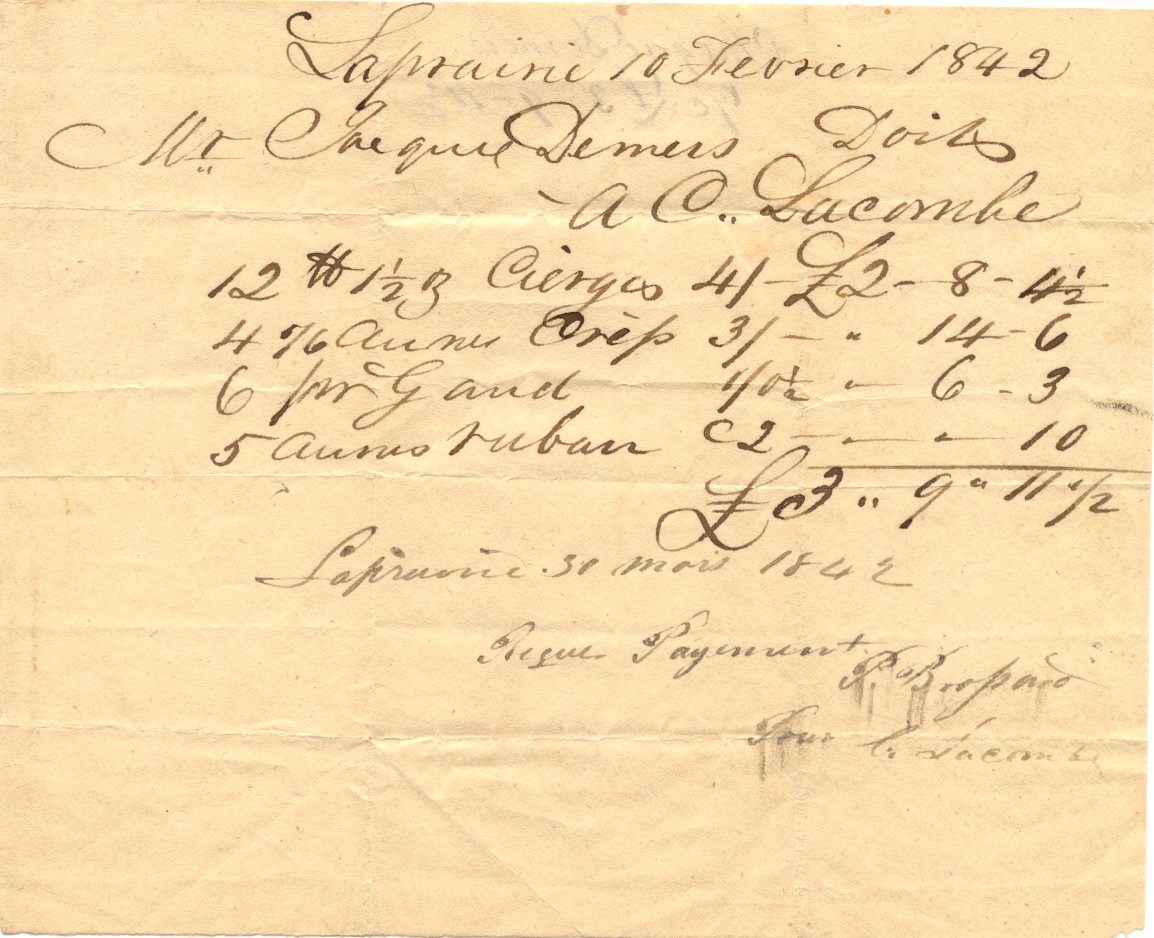 Laprairie 10 Fevrier 1842
Mr Jacque Demers Doit
A C. Lacombe
12 ℔ 1½ 3 Cierges 4/ - £2 - 8 - 4½
4 5/6 aunes Crêp 3/ - " 14 - 6
6 pr Gand 1/0½ " 6 - 3
5 aunes ruban c2 - " - " - 10
£3 " 9 " 11 1/2
Laprairie 30 mars 1842
Reçue Payement
P. Brossard
Pour C. Lacombe